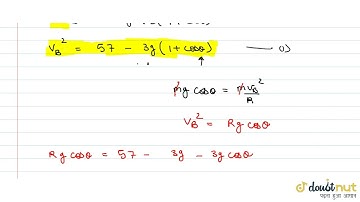 V_B² = 57 − 3g(1+cosθ) —— (1)
mg cosθ = mv_B²/R
V_B² = Rg cosθ
Rg cosθ = 57 − 3g − 3g cosθ
doubtnut
पढ़ना हुआ आसान